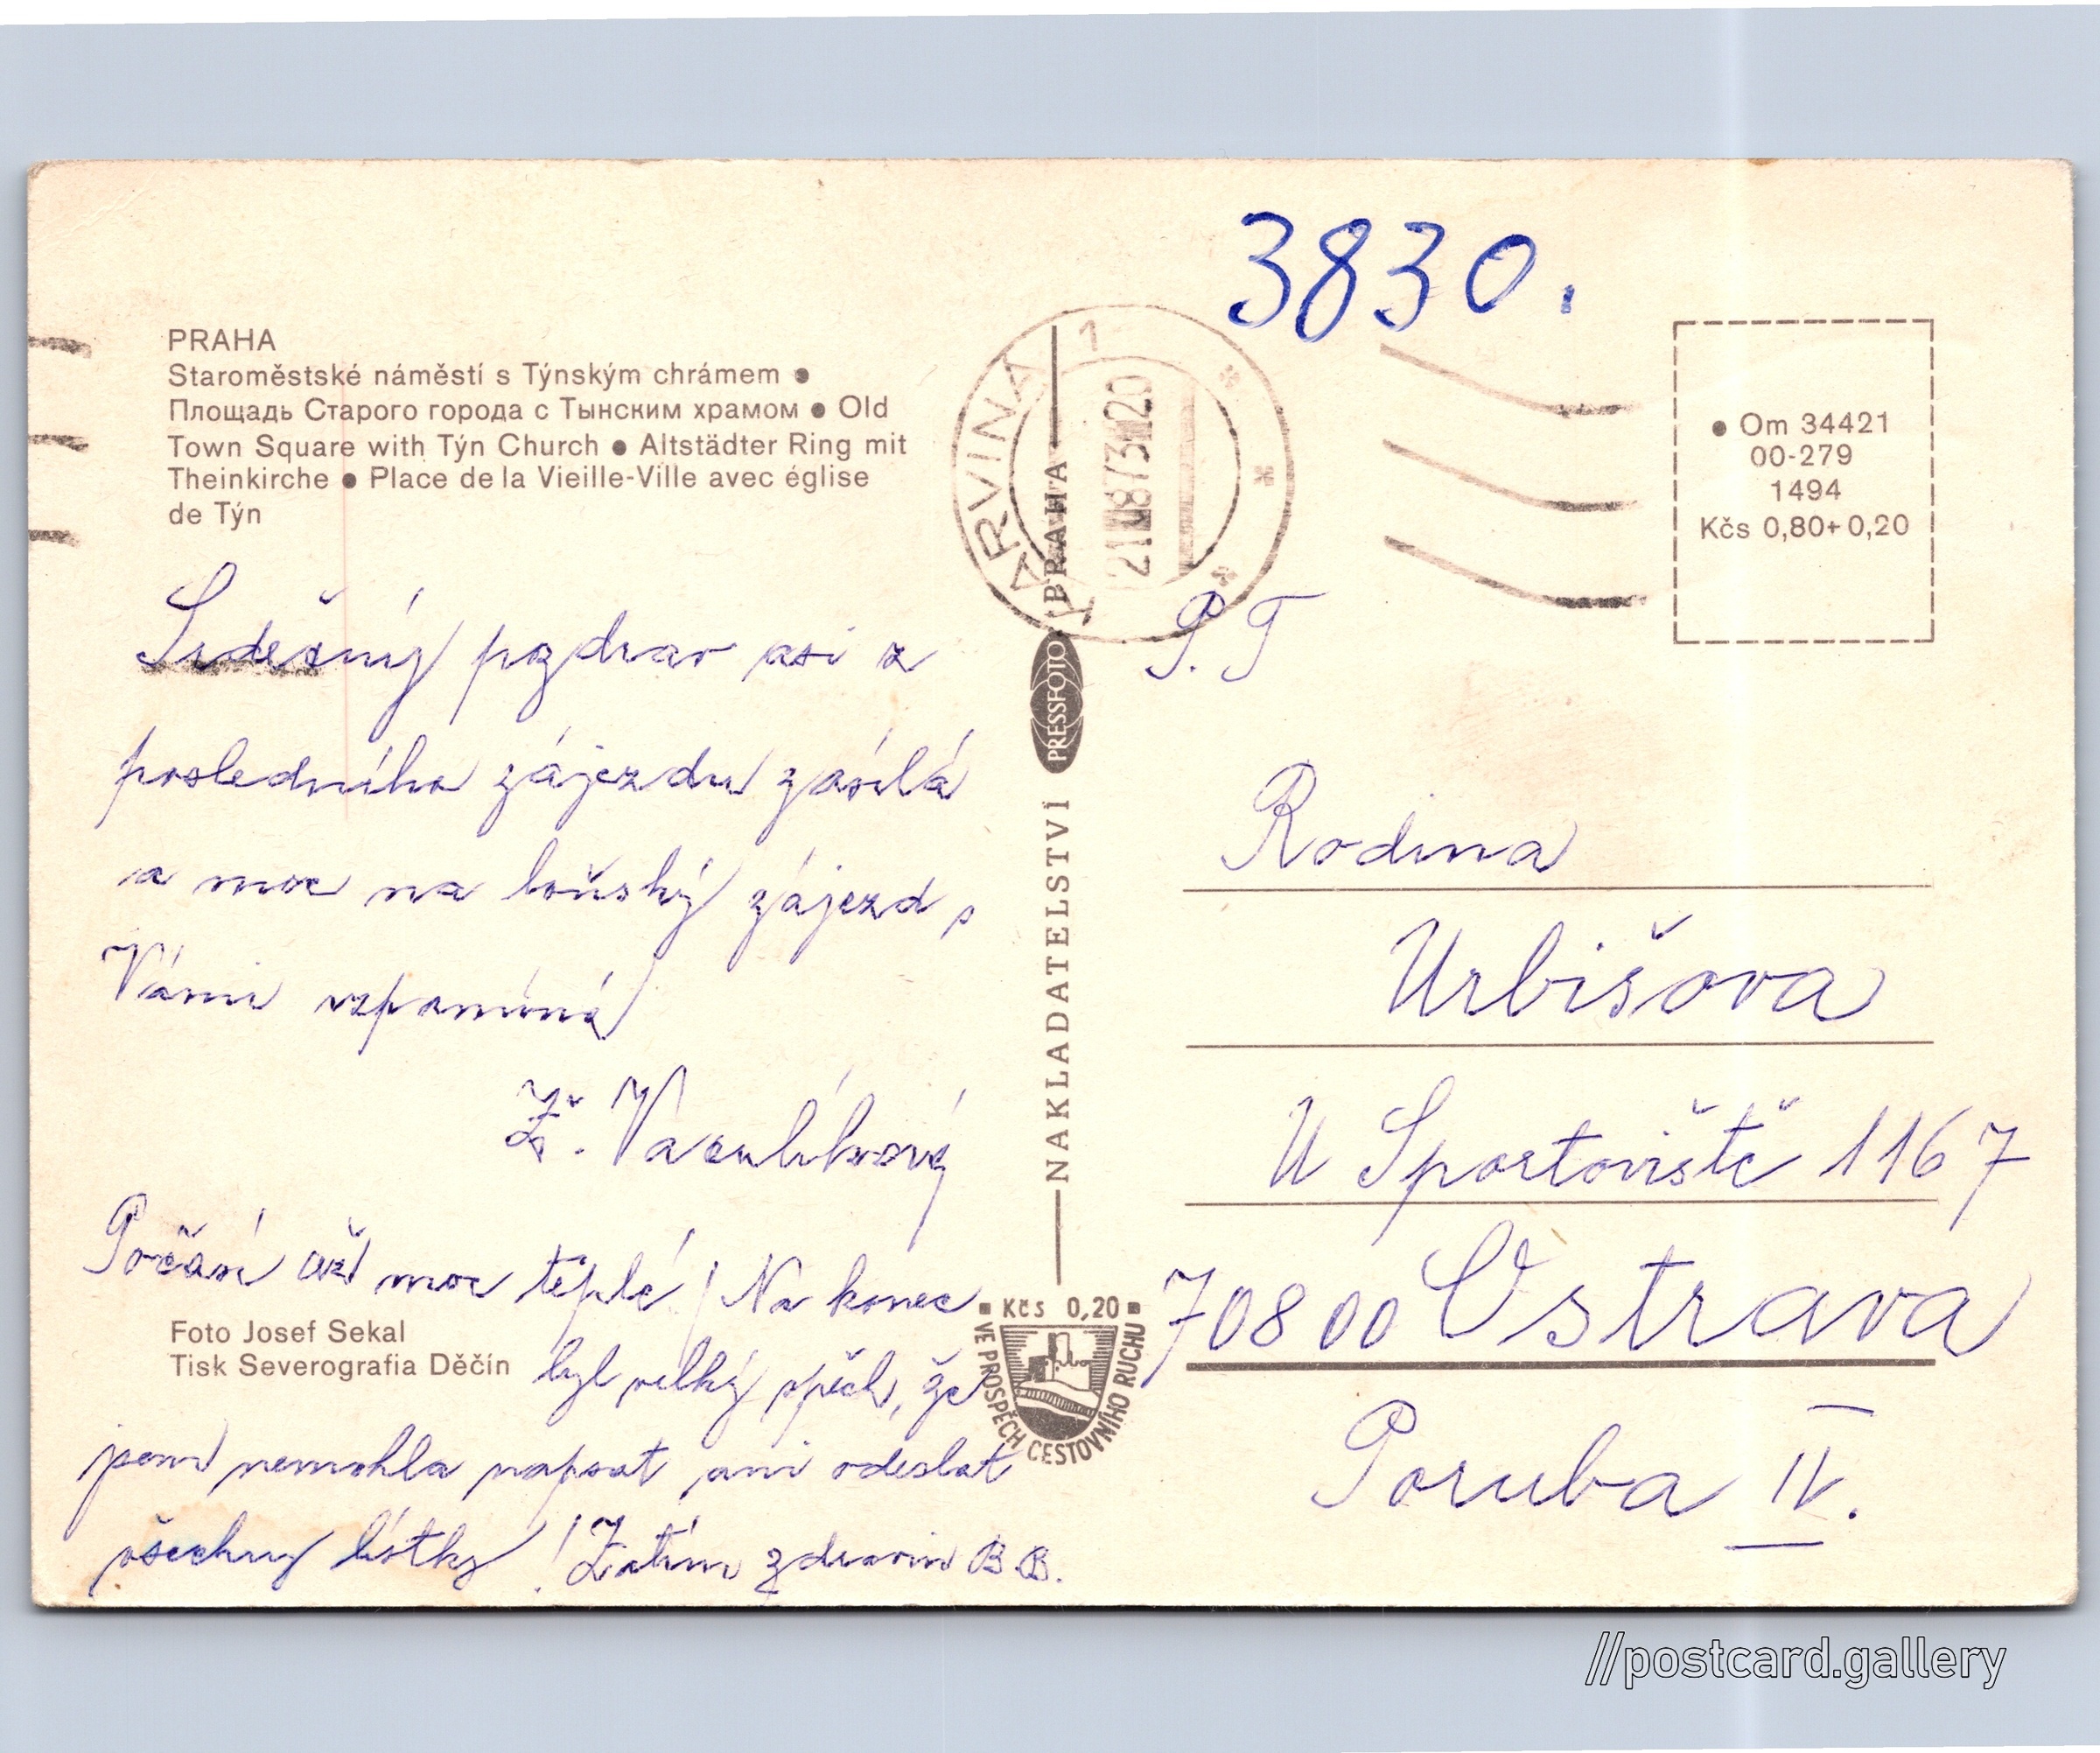 3830.
PRAHA
Staroměstské náměstí s Týnským chrámem ●
Площадь Старого города с Тынским храмом ● Old
Town Square with Týn Church ● Altstädter Ring mit
Theinkirche ● Place de la Vieille-Ville avec église
de Týn
Srdečný pozdrav asi z
posledního zájezdu zasílá
a moc na loňský zájezd s
Vámi vzpomíná
Počásí až moc teplé! Na konec
byl velký spěch, že
jsem nemohla napsat ani odeslat
všechny lístky! Zatím zdravím B.B.
Foto Josef Sekal
Tisk Severografia Děčín
KARVINA 1
NAKLADATELSTVÍ PRESSFOTO PRAHA
Kčs 0,20
VE PROSPĚCH CESTOVNÍHO RUCHU
● Om 34421
00-279
1494
Kčs 0,80+0,20
P.T
Rodina
Urbišova
U Sportoviště 1167
70800 Ostrava
Poruba IV.
//postcard.gallery